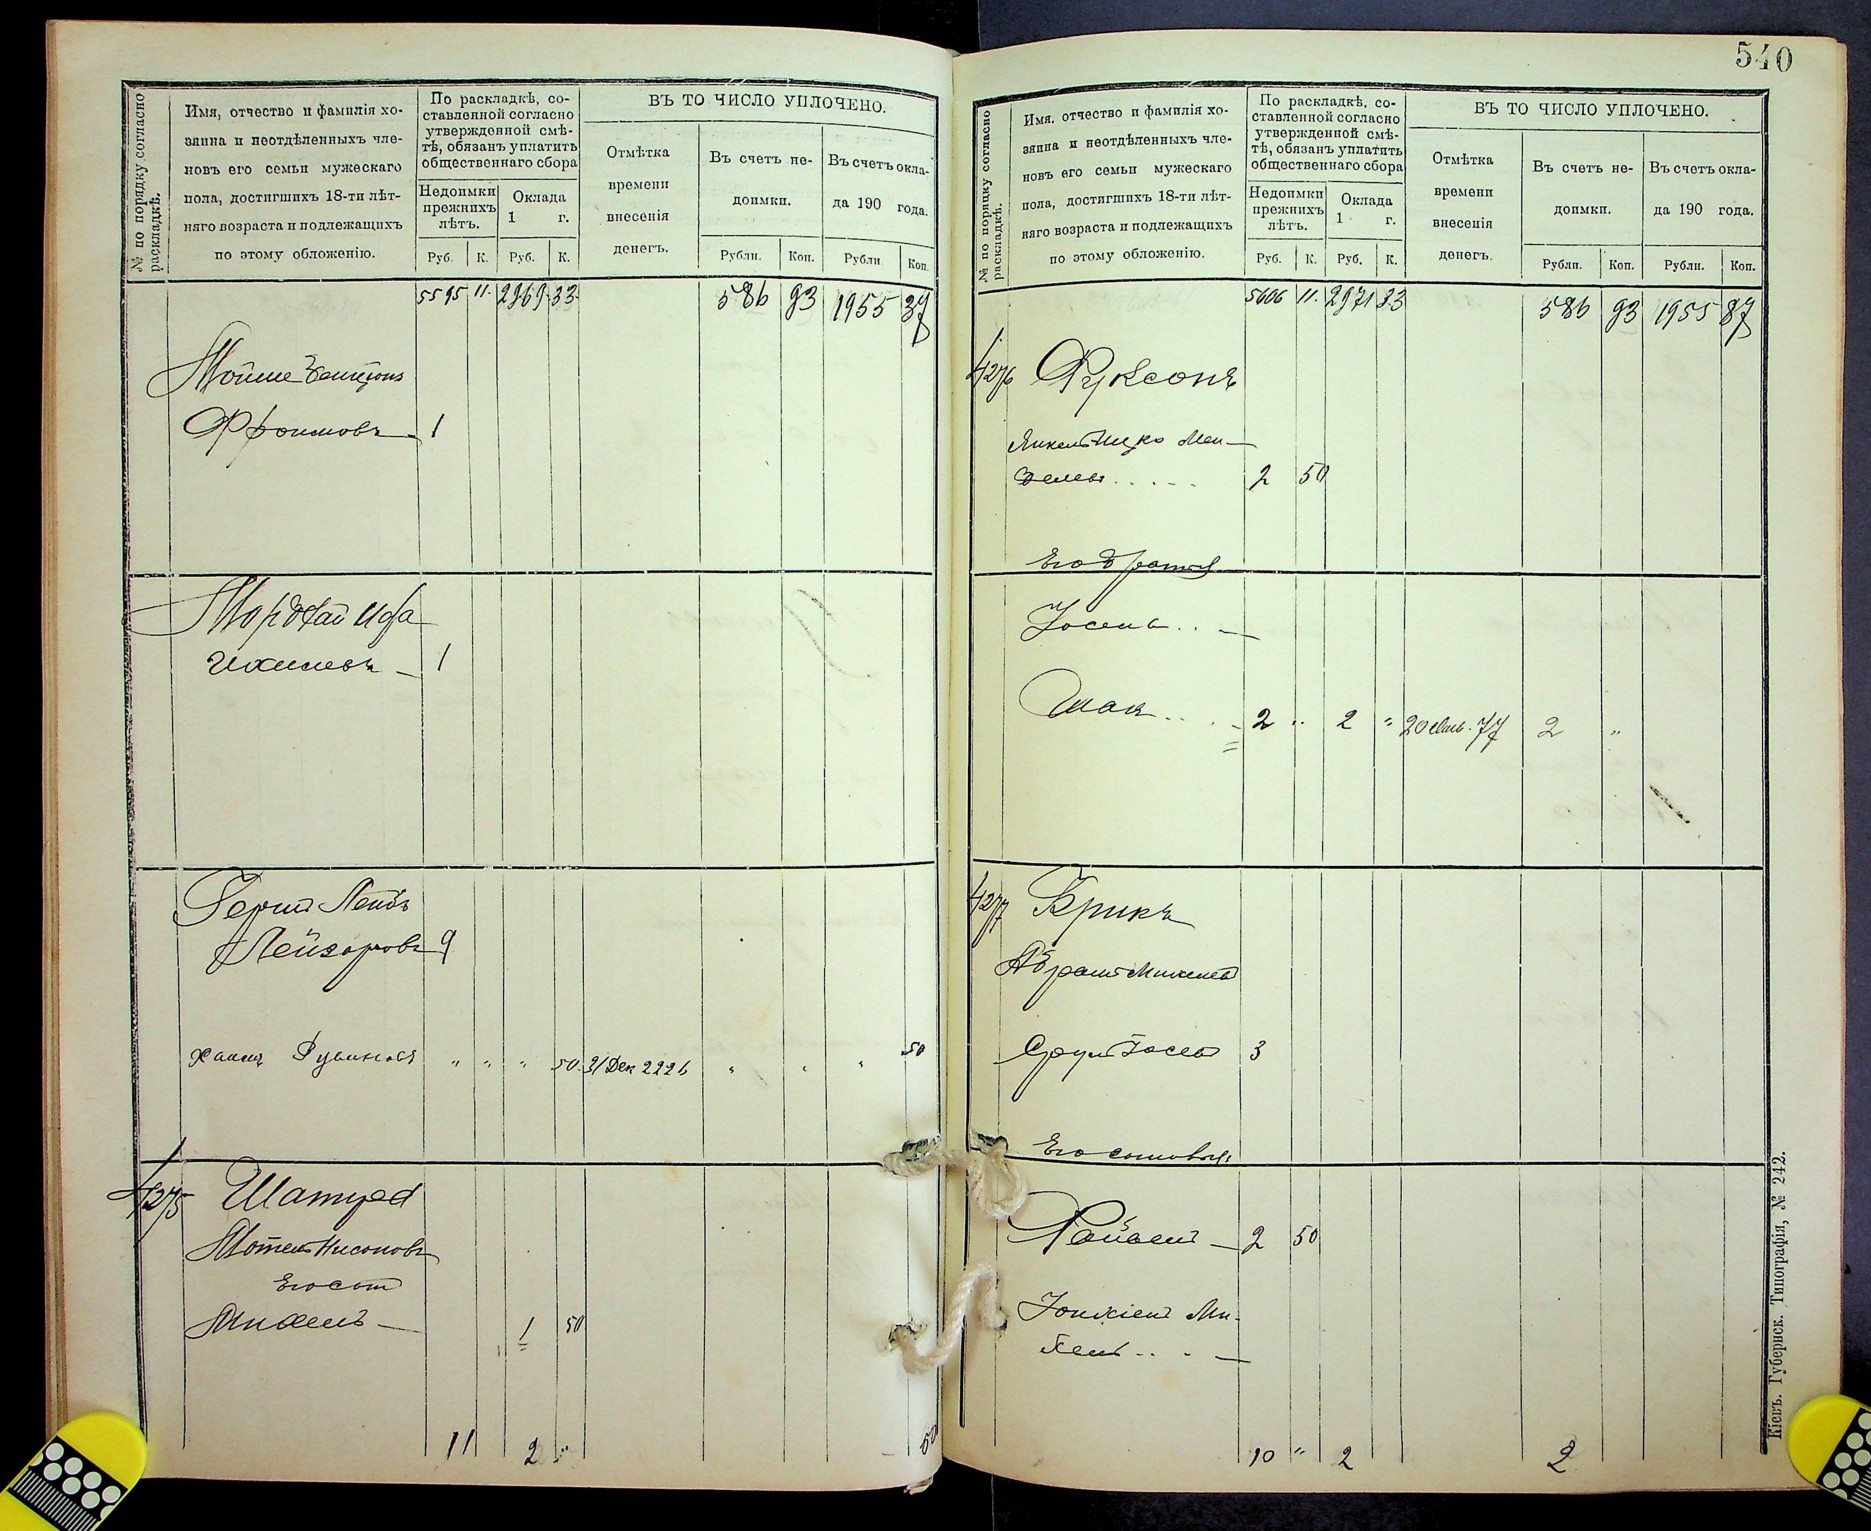 № по порядку согласно раскладкѣ.
Имя, отчество и фамилія хо-
зяина и неотдѣленныхъ чле-
новъ его семьи мужескаго
пола, достигшихъ 18-ти лѣт-
няго возраста и подлежащихъ
по этому обложенію.
По раскладкѣ, со-
ставленной согласно
утвержденной смѣ-
тѣ, обязанъ уплатить
общественнаго сбора
Недоимки
прежнихъ
лѣтъ.
Оклада
1 г.
Руб. К. Руб. К.
ВЪ ТО ЧИСЛО УПЛОЧЕНО.
Отмѣтка
времени
внесенія
денегъ.
Въ счетъ не-
доимки.
Въ счетъ окла-
да 190 года.
Рубли. Коп. Рубли Коп.
5595 11. 2969 33 586 93 1955 37
Мойше Бенціонъ
Фроимовъ 1
Мордхай
1
Герш Лейбъ
Лейзоровъ 9
Хаимъ Рувиновъ " " " 50 31 Дек 2226 " " " 50
4275 Шатуле
Мотель Нисоновъ
Его сын
Михель 1 50
11 2 " 50
540
№ по порядку согласно раскладкѣ.
Имя, отчество и фамилія хо-
зяина и неотдѣленныхъ чле-
новъ его семьи мужескаго
пола, достигшихъ 18-ти лѣт-
няго возраста и подлежащихъ
по этому обложенію.
По раскладкѣ, со-
ставленной согласно
утвержденной смѣ-
тѣ, обязанъ уплатить
общественнаго сбора
Недоимки
прежнихъ
лѣтъ.
Оклада
1 г.
Руб. К. Руб. К.
ВЪ ТО ЧИСЛО УПЛОЧЕНО.
Отмѣтка
времени
внесенія
денегъ.
Въ счетъ не-
доимки.
Въ счетъ окла-
да 190 года.
Рубли. Коп. Рубли. Коп.
5606 11. 2971 33 586 93 1955 87
4276 Фуксонъ
Янкель Ицко Мен-
делев 2 50
Его братья
Іосель
Исак 2 " 2 " 20 77 2 "
4277 Брикъ
Абрам Михелев
Сруль Іосев 3
Его сыновья:
Файвель 2 50
Іонкіель Ми-
хель
10 " 2 2
Кіевъ. Губернск. Типографія, № 242.